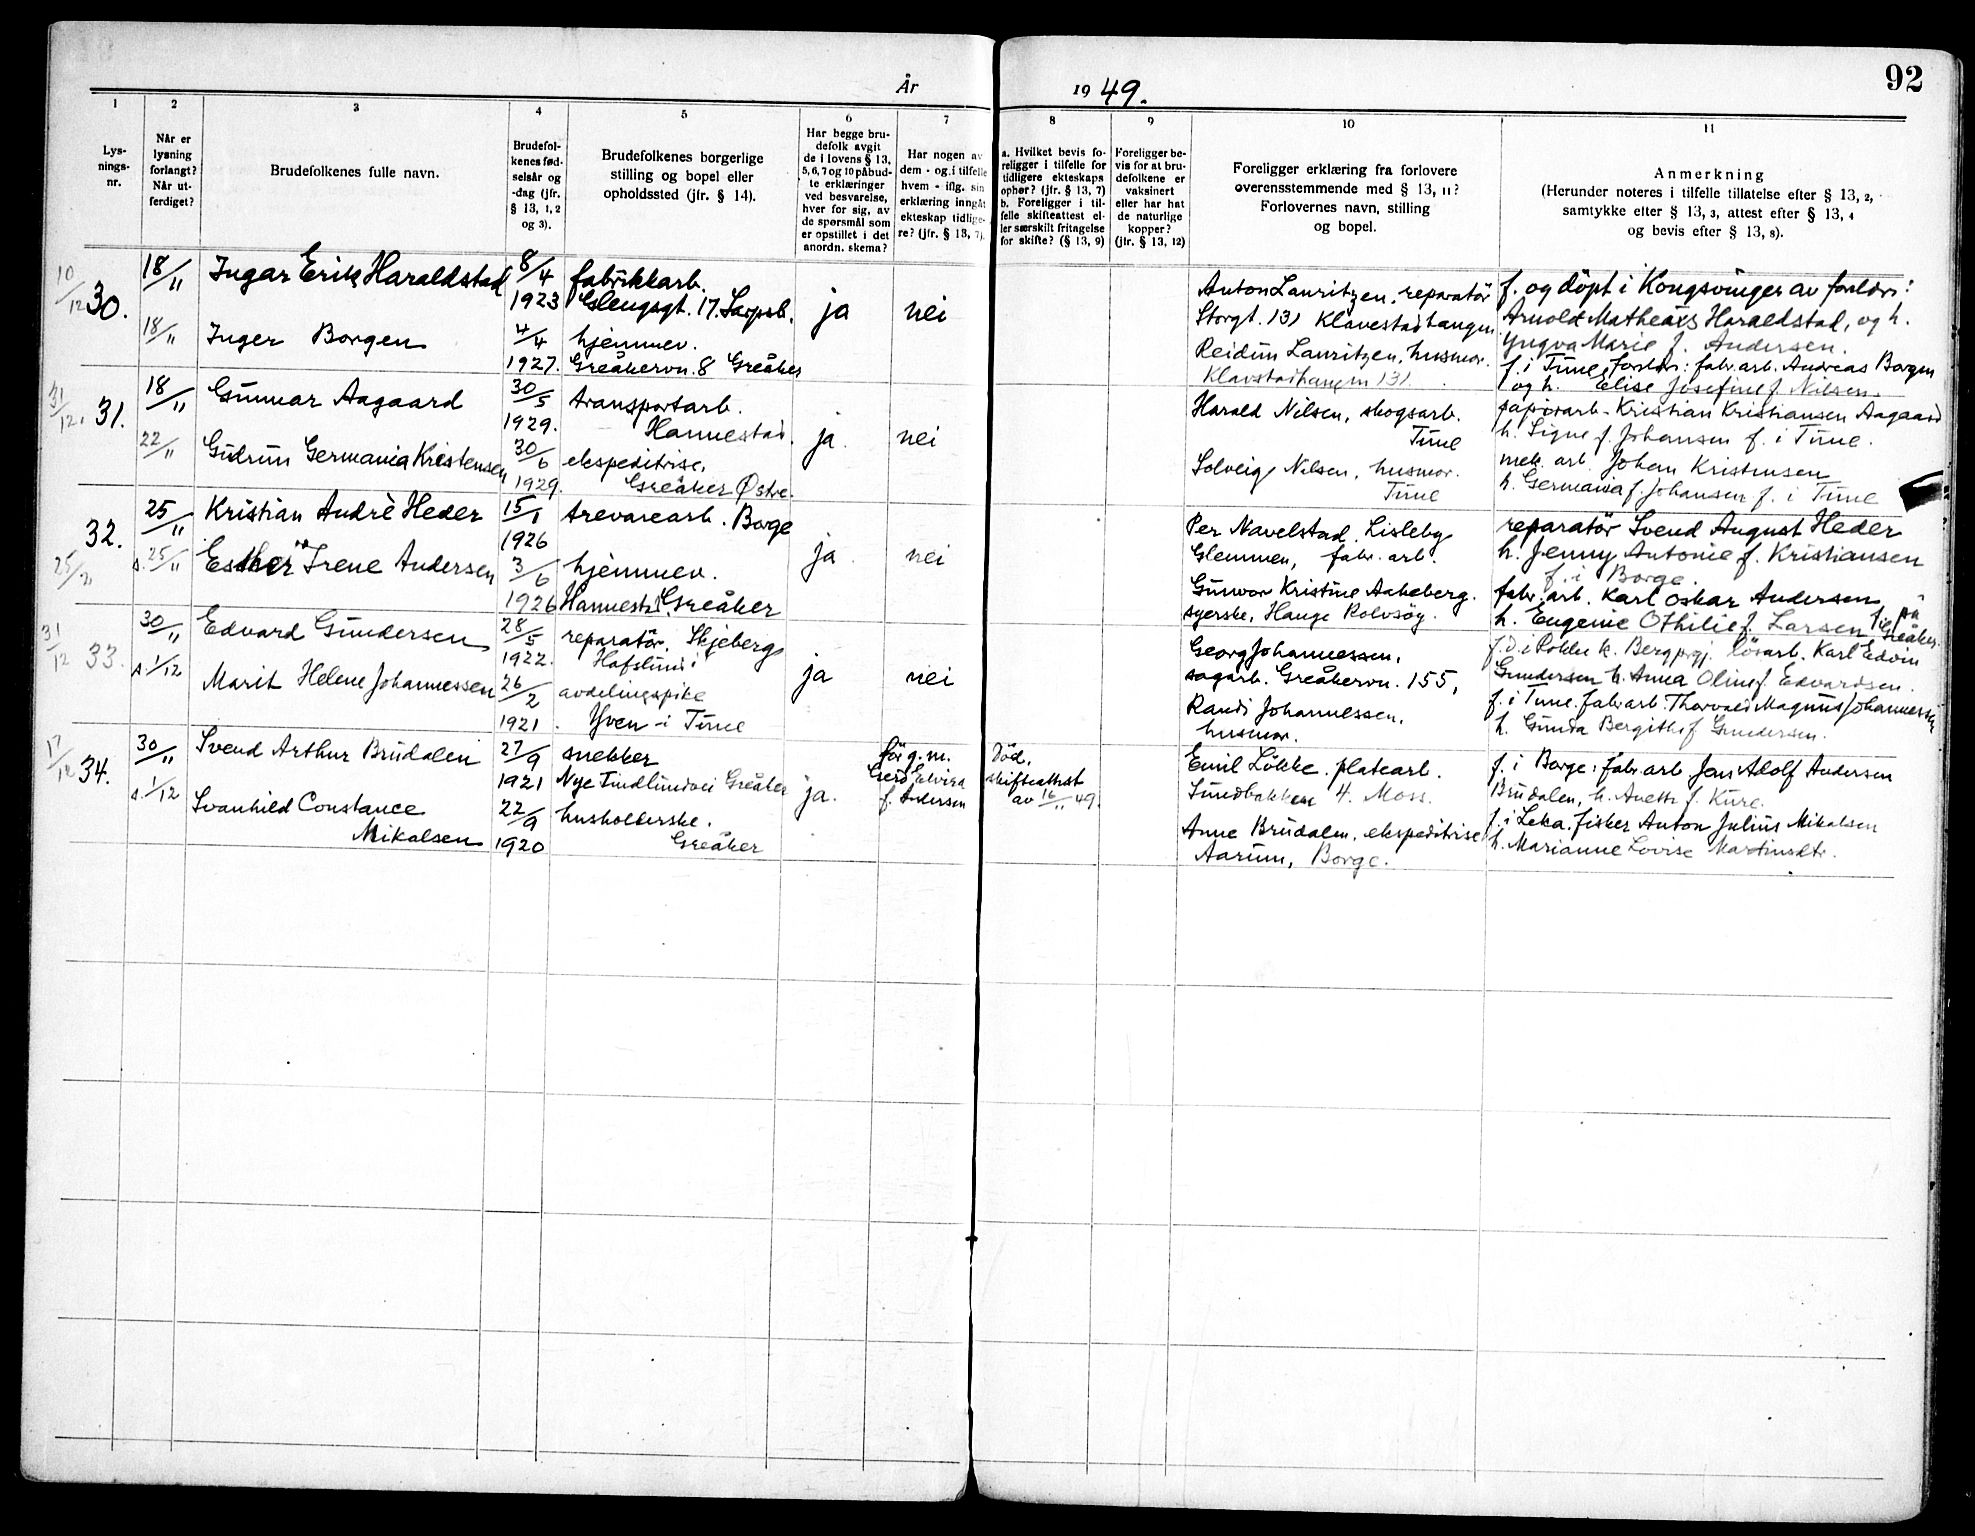 92
År 1949.
1
2
3
4
5
6
7
8
9
10
11
Lys-
nings-
nr.
Når er
lysning
forlangt?
Når ut-
ferdiget?
Brudefolkenes fulle navn.
Brudefol-
kenes fød-
selsår og
-dag (jfr.
§ 13, 1, 2
og 3).
Brudefolkenes borgerlige
stilling og bopel eller
opholdssted (jfr. § 14).
Har begge bru-
defolk avgit
de i lovens § 13,
5, 6, 7 og 10 påbud-
te erklæringer
ved besvarelse,
hver for sig, av
de spørsmål som
er opstillet i det
anordn. skema?
Har nogen av
dem - og i tilfelle
hvem - iflg. sin
erklæring inngåt
ekteskap tidlige-
re? (jfr. § 13, 7).
a. Hvilket bevis fo-
religger i tilfelle for
tidligere ekteskaps
ophør? (jfr. § 13, 7)
b. Foreligger i til-
felle skifteattest el-
ler særskilt fritagelse
for skifte? (§ 13, 9)
Foreligger be-
vis for at bru-
defolkene er
vaksinert
eller har hat
de naturlige
kopper?
(jfr. § 13, 12)
Foreligger erklæring fra forlovere
overensstemmende med § 13, 11?
Forlovernes navn, stilling
og bopel.
Anmerkning
(Herunder noteres i tilfelle tillatelse efter § 13, 2,
samtykke efter § 13, 3, attest efter § 13, 4
og bevis efter § 13, 8).
10/12
30.
18/11
Ingar Erik Haraldstad
8/4
1923
fabrikkarb.
Glengsgt. 17. Sarpsb.
ja
nei
18/11
Inger Borgen
4/4
1927.
hjemmev.
Greåkervn. 8 Greåker
Anton Lauritzen, reparatör
Storgt. 131 Klavestadhaugen
Reidun Lauritzen, husmor.
Klavstadhaugen 131.
f. og döpt i Kongsvinger av foreldre:
Arnold Matheus Haraldstad, og h.
Yngva Marie f. Andersen.
f. i Tune, foreldre: fabr.arb. Andreas Borgen
og h. Elise Josefine f. Nilsen.
31/12.
31.
18/11
Gunnar Aagaard
30/5
1929.
transportarb.
Hannestad.
ja.
nei
22/11
Gudrun Germania Kristensen
30/6
1929.
ekspeditrise.
Greåker Østre.
Harald Nilsen, skogsarb.
Tune
Solveig Nilsen, husmor.
Tune
papirarb. Kristian Kristiansen Aagaard
h. Signe f. Johansen f. i Tune.
mek. arb. Johan Kristensen
h. Germania f. Johansen f. i Tune
32.
25/2
25/11
Kristian Andrè Heder
15/1
1926
trevarearb. Borge
ja
nei
s. 25/11
Esther Irene Andersen
3/6
1926
hjemmev.
Hannestad Greåker
Per Navelstad, Lisleby
Glemmen, fabr. arb.
Gunvor Kristine Aakeberg.
syerske, Hauge Rolvsöy.
reparatör Svend August Heder
h. Jenny Antonie f. Kristiansen
f. i Borge.
fabr. arb. Karl Oskar Andersen
h. Eugenie Othilie f. Larsen f. på Greåker.
31/12
33.
30/11
Edvard Gundersen
28/5
1922.
reparatör. Skjeberg
Hafslund
ja
nei
s. 1/12
Marit Helene Johannessen
26/2
1921
avdelingspike
Yven i Tune
Georg Johannessen,
sagarb. Greåkervn. 155,
Randi Johannessen,
husmor.
f. i Rokke k. Berg prgj. lösarb. Karl Edvin
Gundersen h. Anna Oline f. Edvardsen.
f. i Tune. fabr.arb. Thorvald Magnus Johannessen
h. Gunda Bergithe f. Gundersen.
17/12
34.
30/11
Svend Arthur Brudalen
27/9
1921
snekker
Nye Tindlundvei Greåker
ja.
för g.m.
Gerd Elvira
f. Andersen
Död.
skifteattest
av 16/11 49.
s. 1/12
Svanhild Constance
Mikalsen
22/9
1920
husholderske.
Greåker
Emil Lökke. platearb.
Sundbakken 4. Moss.
Anne Brudalen, ekspeditrise
Aarum, Borge.
f. i Borge: fabr. arb Jens Adolf Andersen
Brudalen, h. Anette f. Kure.
f. i Leka. fisker Anton Julius Mikalsen
h. Marianne Lovise Martinsdtr.